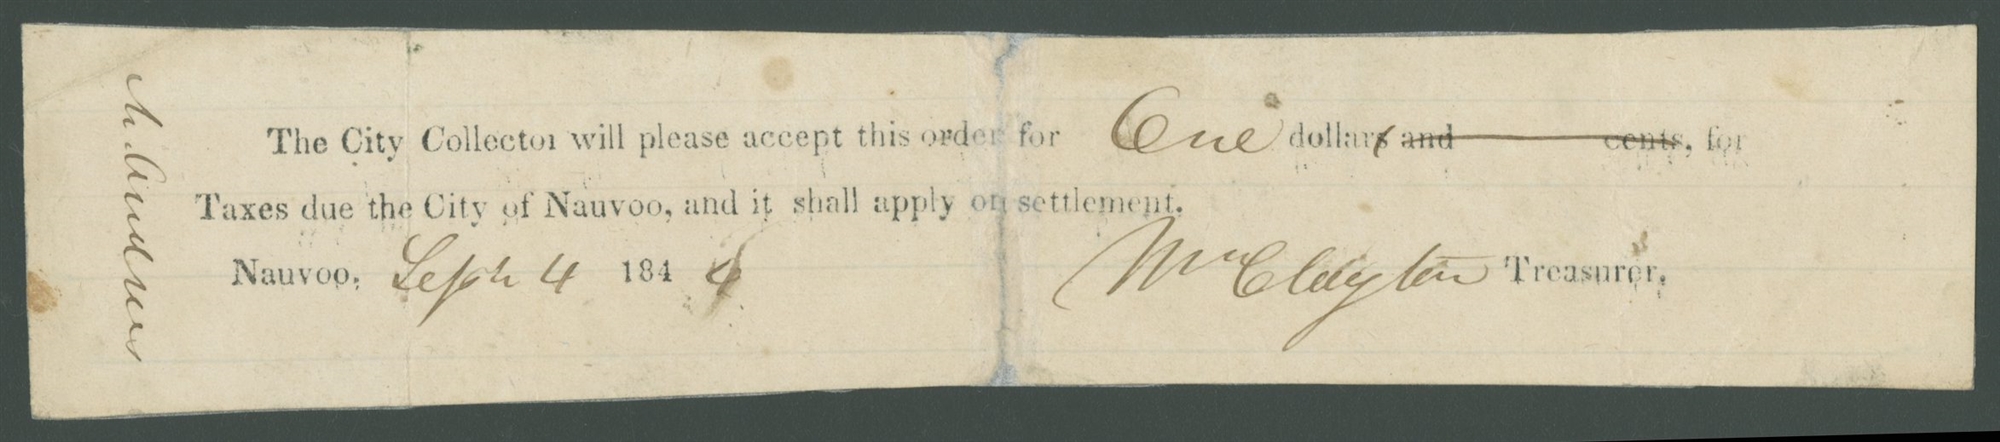 The City Collector will please accept this order for One dollars and cents, for
Taxes due the City of Nauvoo, and it shall apply on settlement.
Nauvoo, Sept 4 1844 Wm Clayton Treasurer.